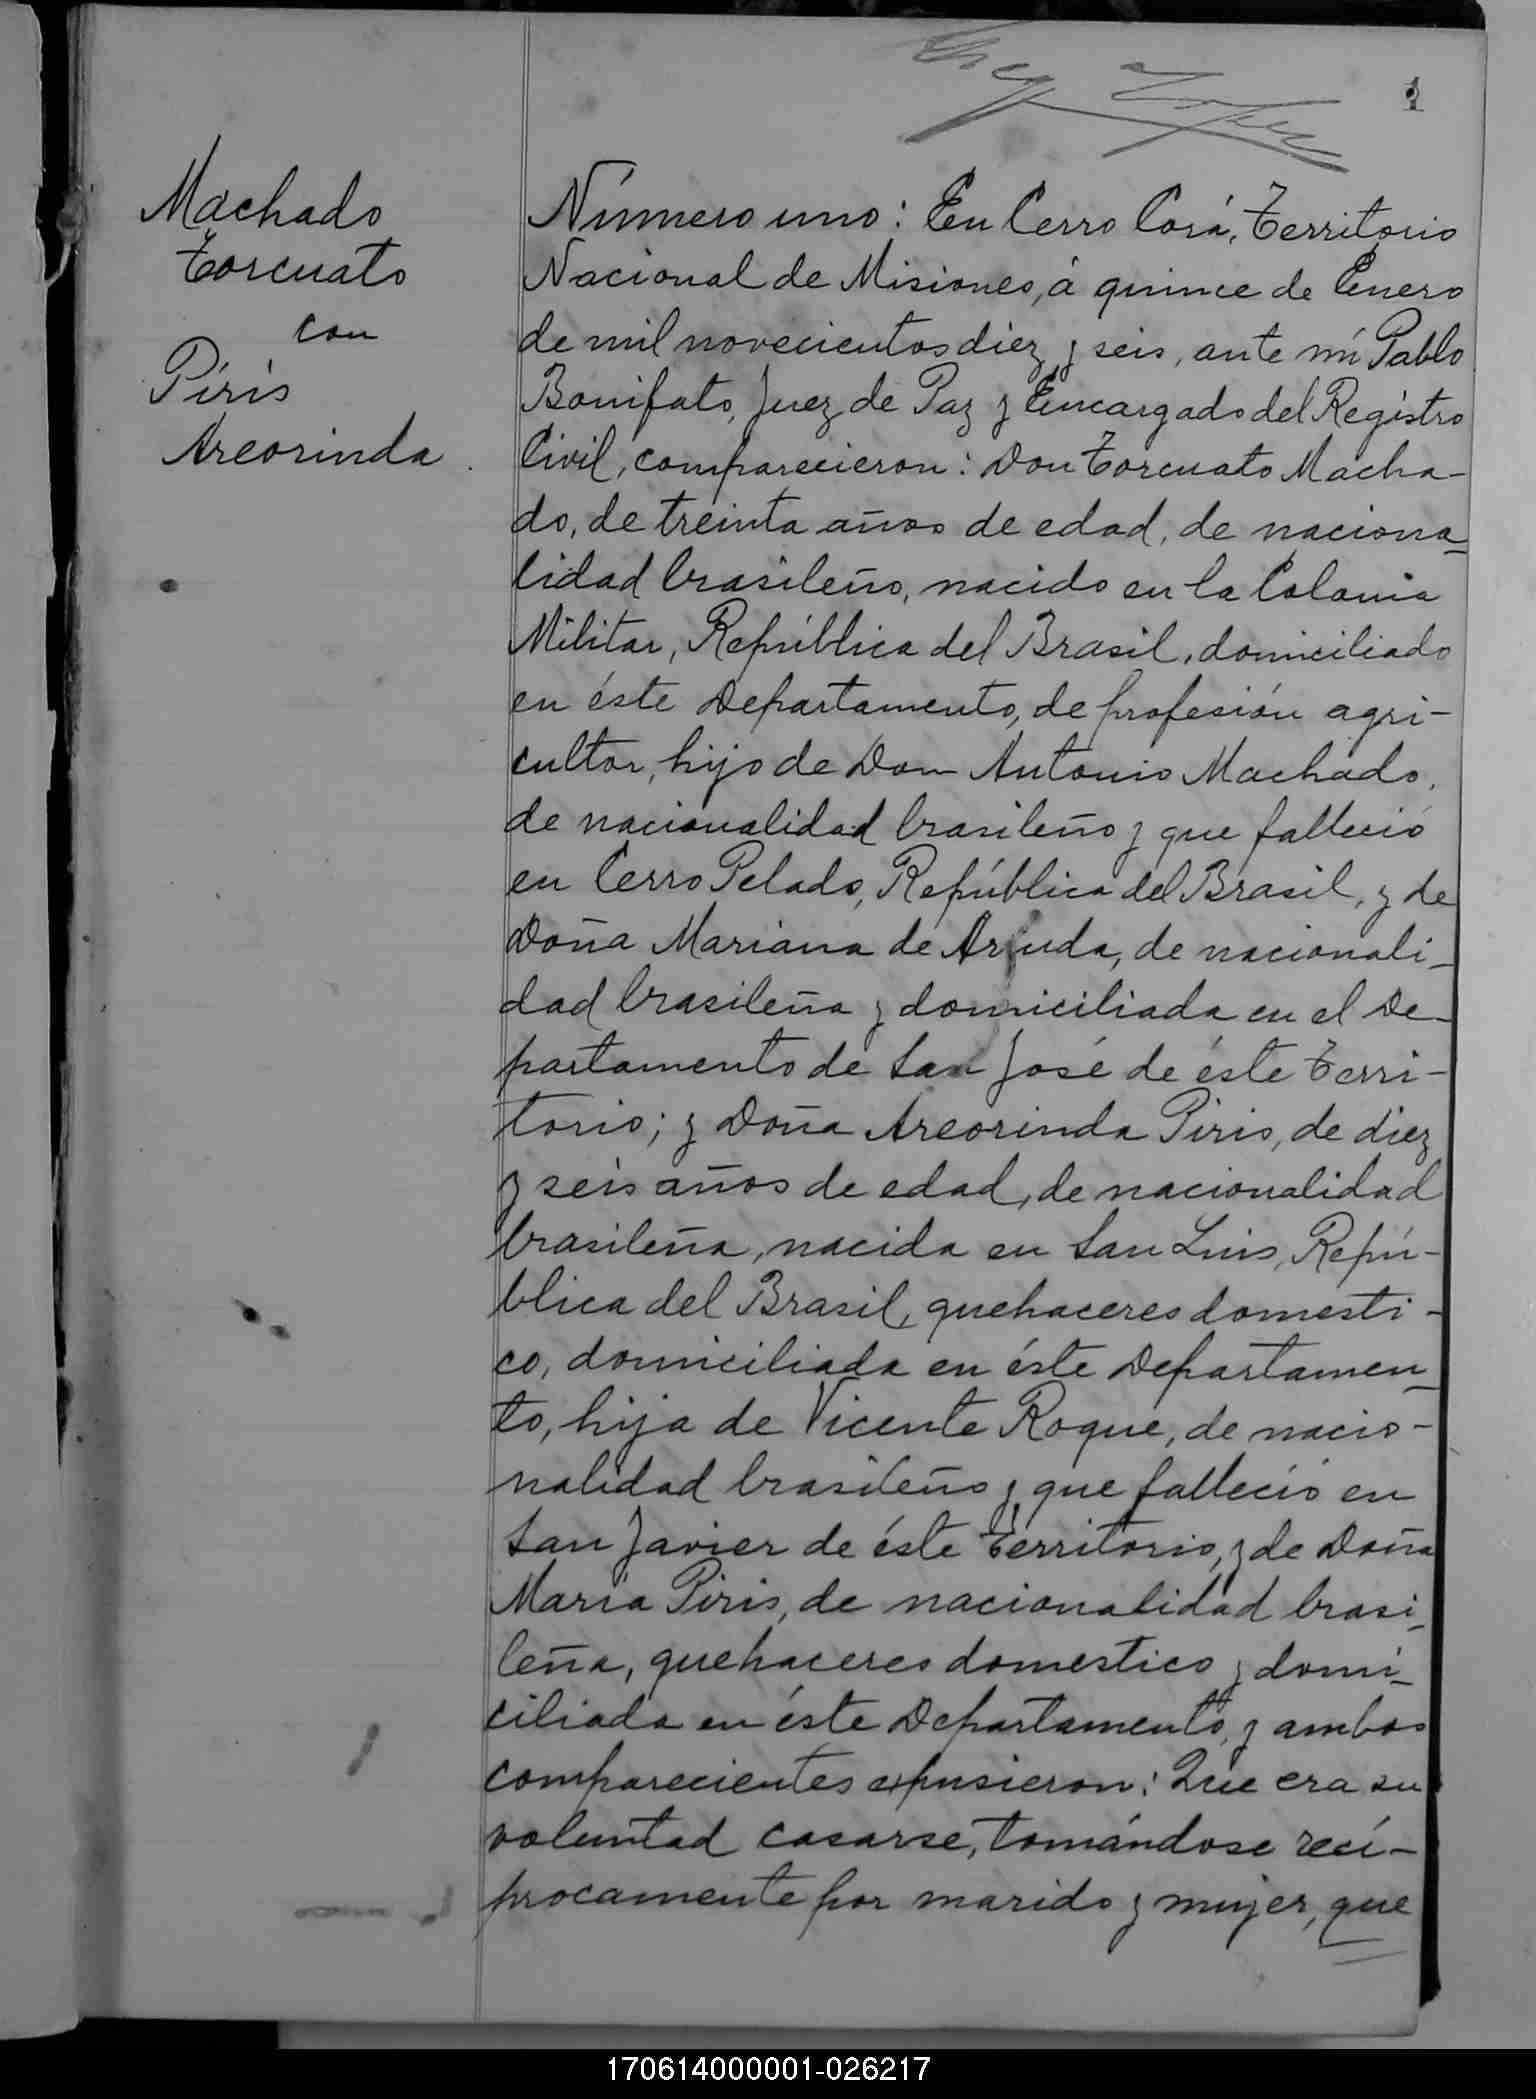 1
Machado
Torcuato
con
Piris
Areorinda
Número uno: En Cerro Corá, Territorio
Nacional de Misiones, á quince de Enero
de mil novecientos diez y seis, ante mí Pablo
Bonifato, Juez de Paz y Encargado del Registro
Civil, comparecieron: Don Torcuato Macha-
do, de treinta años de edad, de naciona-
lidad brasileño, nacido en la Colonia
Militar, República del Brasil, domiciliado
en éste Departamento, de profesión agri-
cultor, hijo de Don Antonio Machado,
de nacionalidad brasileño y que falleció
en Cerro Pelado, República del Brasil, y de
Doña Mariana de Aruda, de nacionali-
dad brasileña y domiciliada en el De-
partamento de San José de éste Terri-
torio; y Doña Areorinda Piris, de diez
y seis años de edad, de nacionalidad
brasileña, nacida en San Luis, Repú-
blica del Brasil, quehaceres domesti-
co, domiciliada en éste Departamen-
to, hija de Vicente Roque, de nacio-
nalidad brasileño y que falleció en
San Javier de éste Territorio, y de Doña
María Piris, de nacionalidad brasi-
leña, quehaceres domestico y domi-
ciliada en éste Departamento, y ambos
comparecientes expusieron: Que era su
voluntad casarse, tomándose recí-
procamente por marido y mujer, que
170614000001-026217